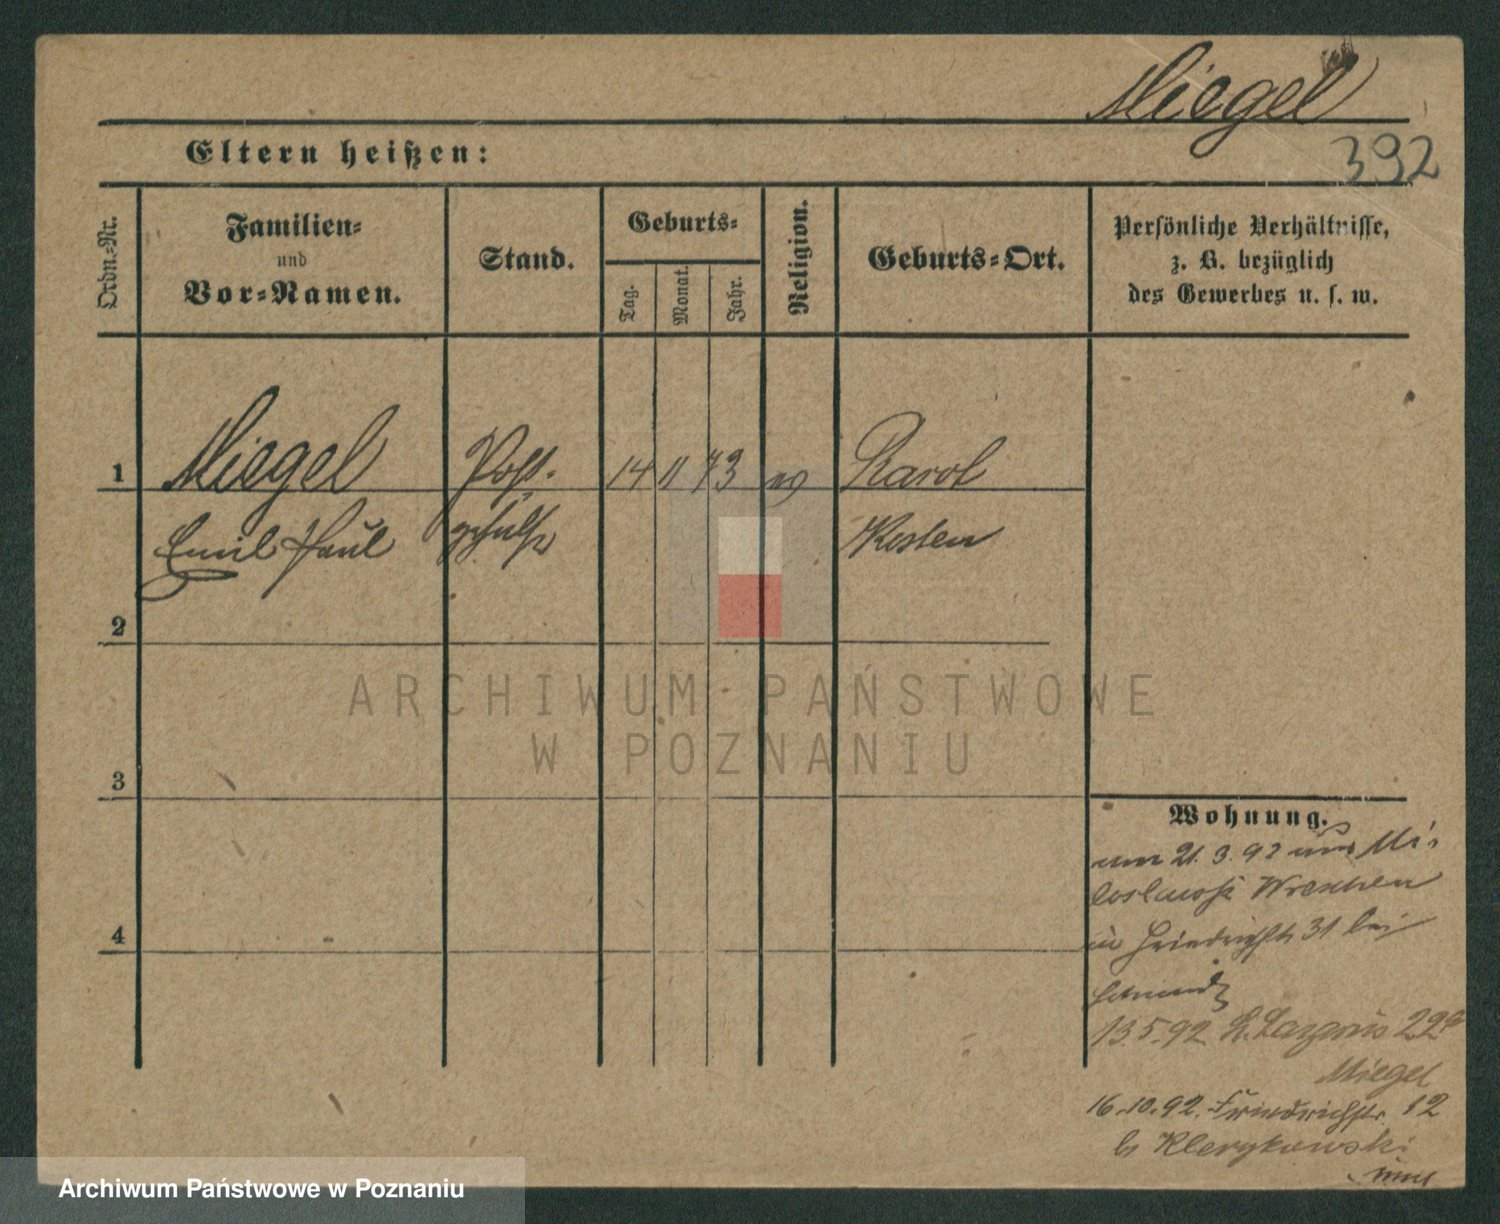 Miegel
392
Eltern heißen:
Ordn.-Nr.
Familien-
und
Vor-Namen.
Stand.
Geburts-
Tag.
Monat.
Jahr.
Religion.
Geburts-Ort.
Persönliche Verhältnisse,
z. B. bezüglich
des Gewerbes u. s. w.
1
Miegel
Post-
14 11 73
ev
Emil Paul
gehülfe
Kosten
2
ARCHIWUM PAŃSTWOWE
W POZNANIU
3
Wohnung.
21.3.92 aus Mi-
loslaw Wreschen
in Friedrichstr 31 bei
4
13.5.92 St. Lazarus 22
Miegel
16.10.92. Friedrichstr. 12
b Klerykowski
Archiwum Państwowe w Poznaniu